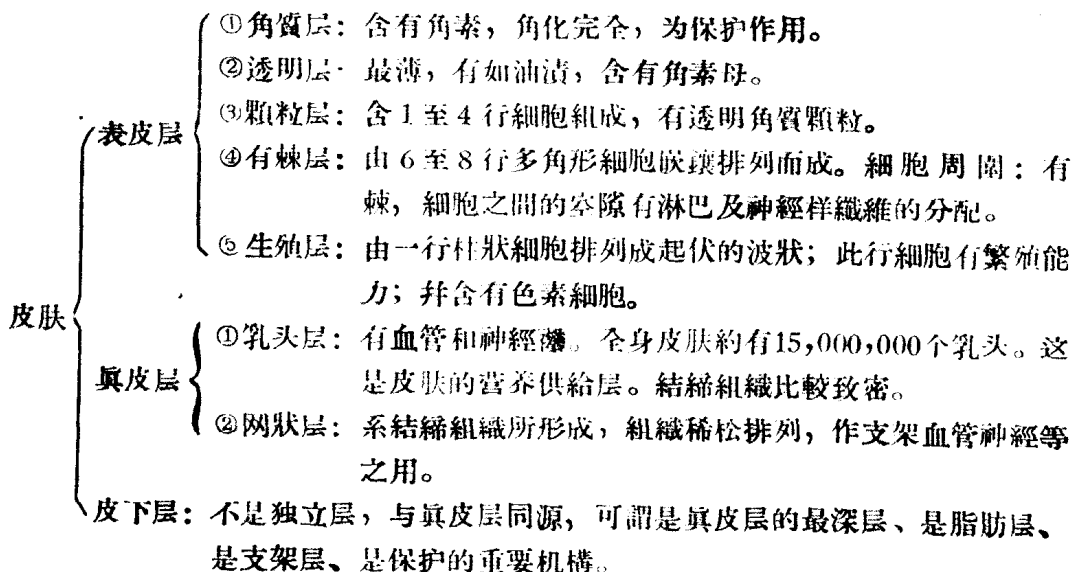 ①角質层：含有角素，角化完全，为保护作用。
②透明层· 最薄，有如油漬，含有角素母。
③顆粒层：含1至4行細胞組成，有透明角質顆粒。
表皮层
④有棘层：由6至8行多角形細胞嵌鑲排列而成。細胞周圍：有
棘，細胞之間的空隙有淋巴及神經样纖維的分配。
⑤生殖层：由一行柱狀細胞排列成起伏的波狀；此行細胞有繁殖能
力；幷含有色素細胞。
皮肤
①乳头层：有血管和神經。全身皮肤約有15,000,000个乳头。这
眞皮层
是皮肤的营养供給层。結締組織比較致密。
②网狀层：系結締組織所形成，組織稀松排列，作支架血管神經等
之用。
皮下层：不是独立层，与眞皮层同源，可謂是眞皮层的最深层、是脂肪层、
是支架层、是保护的重要机構。